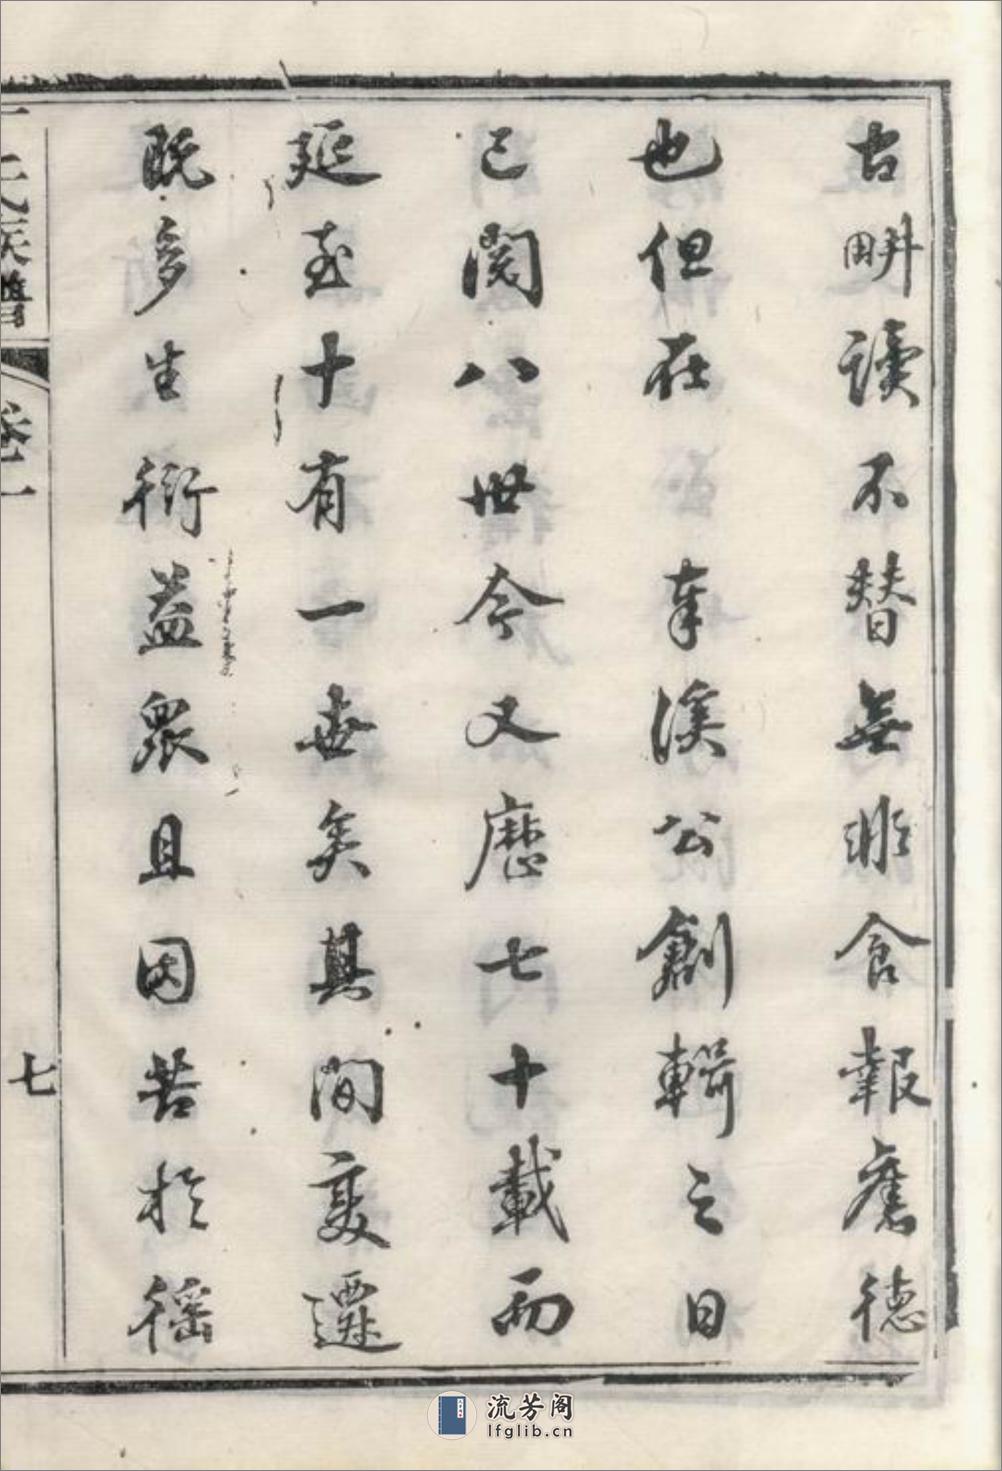 古畊讀不替無非食報舊德
也但在 溪公創輯之日
已閱八世今又歷七十載而
延至十有一世矣其間變遷
既多生衍益眾且因苦於徭
氏族譜 卷一 七
流芳阁
lfglib.cn